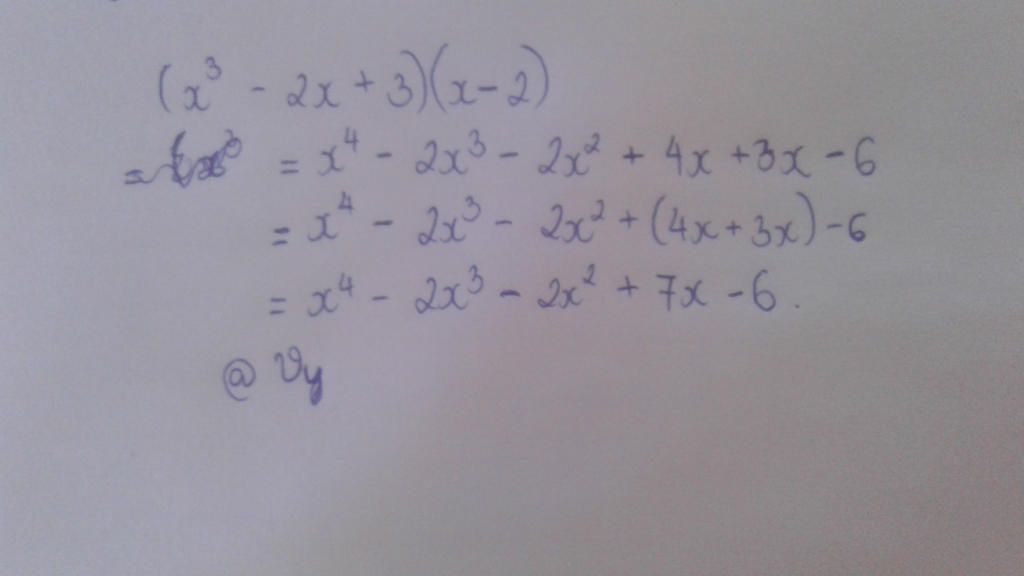 (x³ - 2x + 3)(x - 2)
= x⁴ - 2x³ - 2x² + 4x + 3x - 6
= x⁴ - 2x³ - 2x² + (4x + 3x) - 6
= x⁴ - 2x³ - 2x² + 7x - 6.
@ Vy